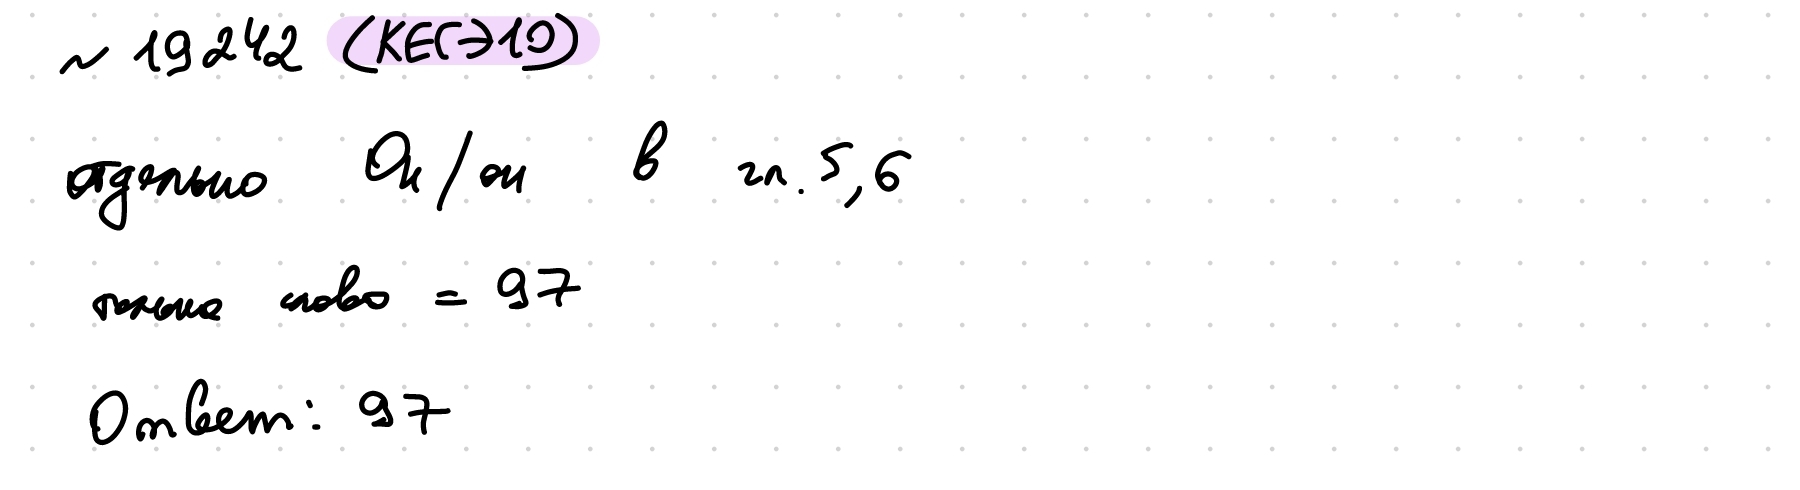 ~ 19242 (КЕГЭ 10)
отдельно Он/он в гл. 5, 6
только слово = 97
Ответ: 97